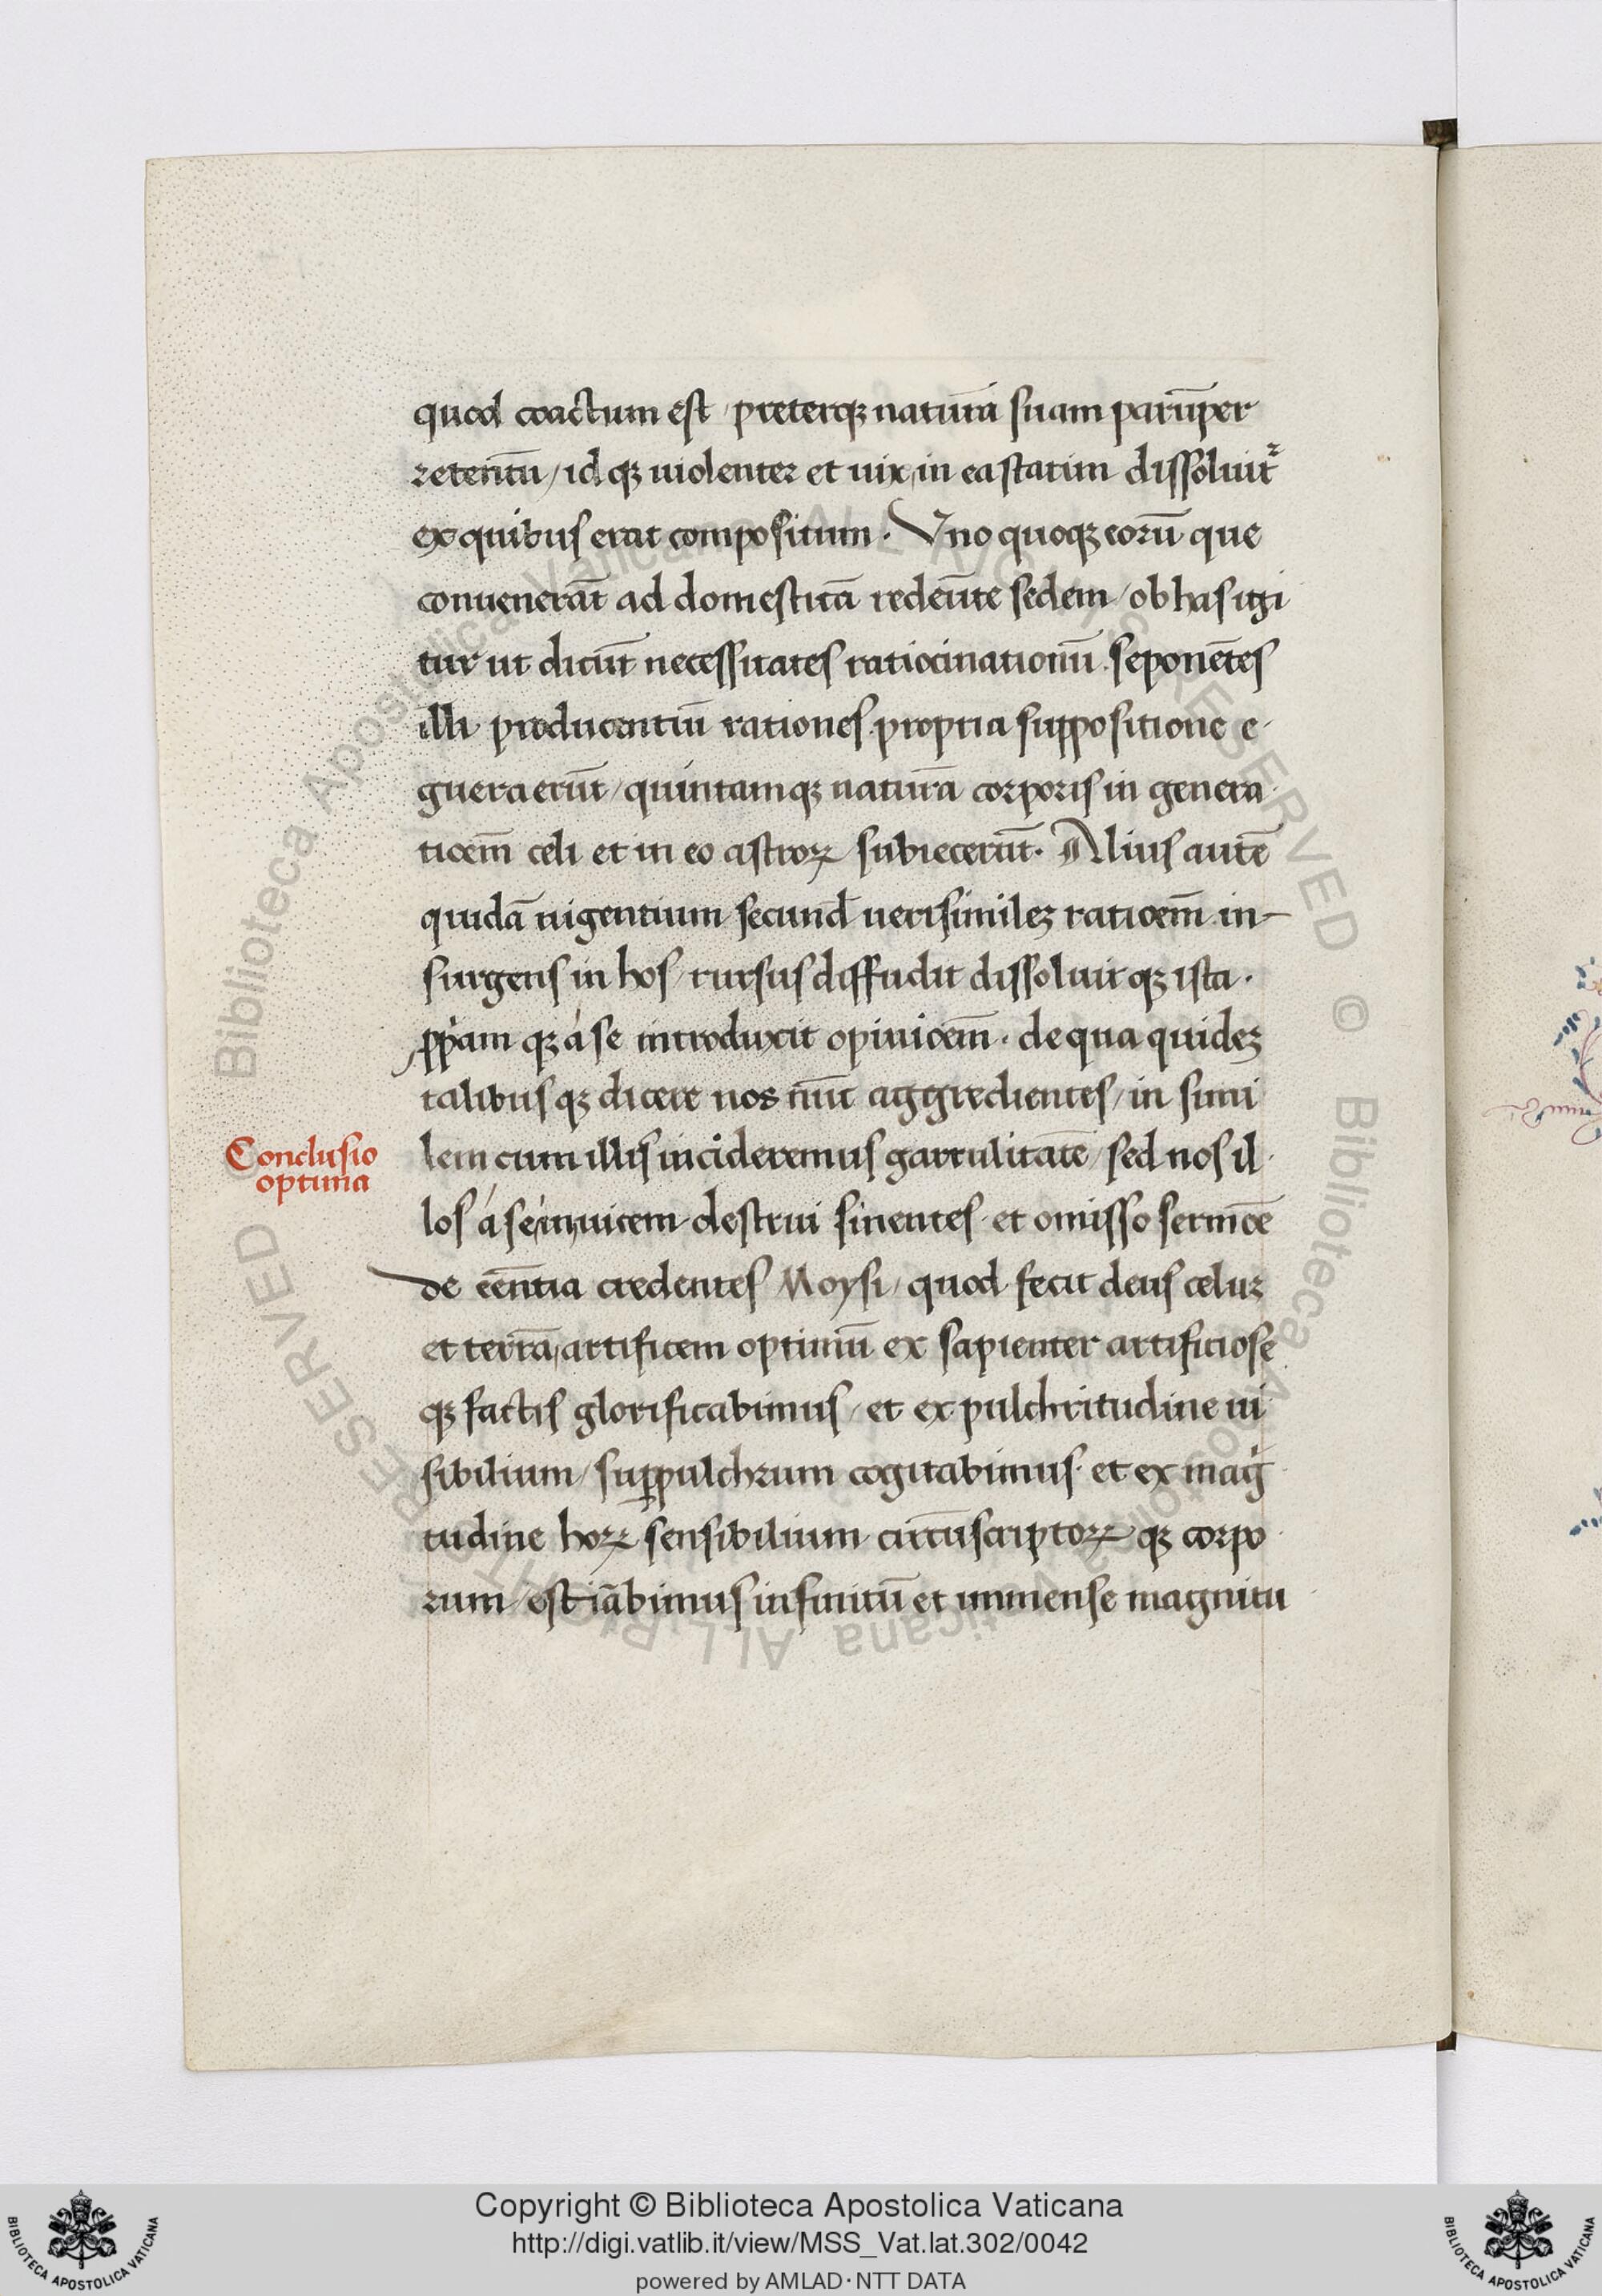 quod coactum est / preterqꝫ naturā suam parūper
retentū / id qꝫ uiolenter et uix in ea statim dissoluit᷑
ex quibus erat compositum. Vno quoqꝫ eorū que
conuenerāt ad domesticā redeūte sedem / ob has igi
tur ut dicūt necessitates ratiocinationū. seponētes
illi producentiū rationes. propria suppositione e-
guera erūt / quintamqꝫ naturā corporis in genera-
tioēm celi et in eo astroꝝ subiecerūt. Alius autē
quidā uigentium secund̄ uerisimileꝫ ratioēm. in-
surgens in hos / rursus diffudit dissoluit qꝫ ista.
ꝓpriam qꝫ á se introduxit opinioēm. de qua quideꝫ
talibus qꝫ dicere nos nūc aggredientes / in simi
Conclusio
optima
lem cum illis incideremus garrulitatē / sed nos il-
los á se inuicem destrui sinentes. et omisso sermōe
de eēntia credentes Moysi / quod fecit deus celuꝫ
et terrā / artificem optimū ex sapienter artificiose
qꝫ factis glorificabimus / et ex pulchritudine ui
sibilium / suꝑpulchrum cogitabimus. et ex magͥ
tudine hoꝝ sensibilium circūscriptoꝝ qꝫ corpo
rum / estīabimus infinitū et immense magnitu
Copyright © Biblioteca Apostolica Vaticana
http://digi.vatlib.it/view/MSS_Vat.lat.302/0042
powered by AMLAD · NTT DATA
BIBLIOTECA APOSTOLICA VATICANA
BIBLIOTECA APOSTOLICA VATICANA